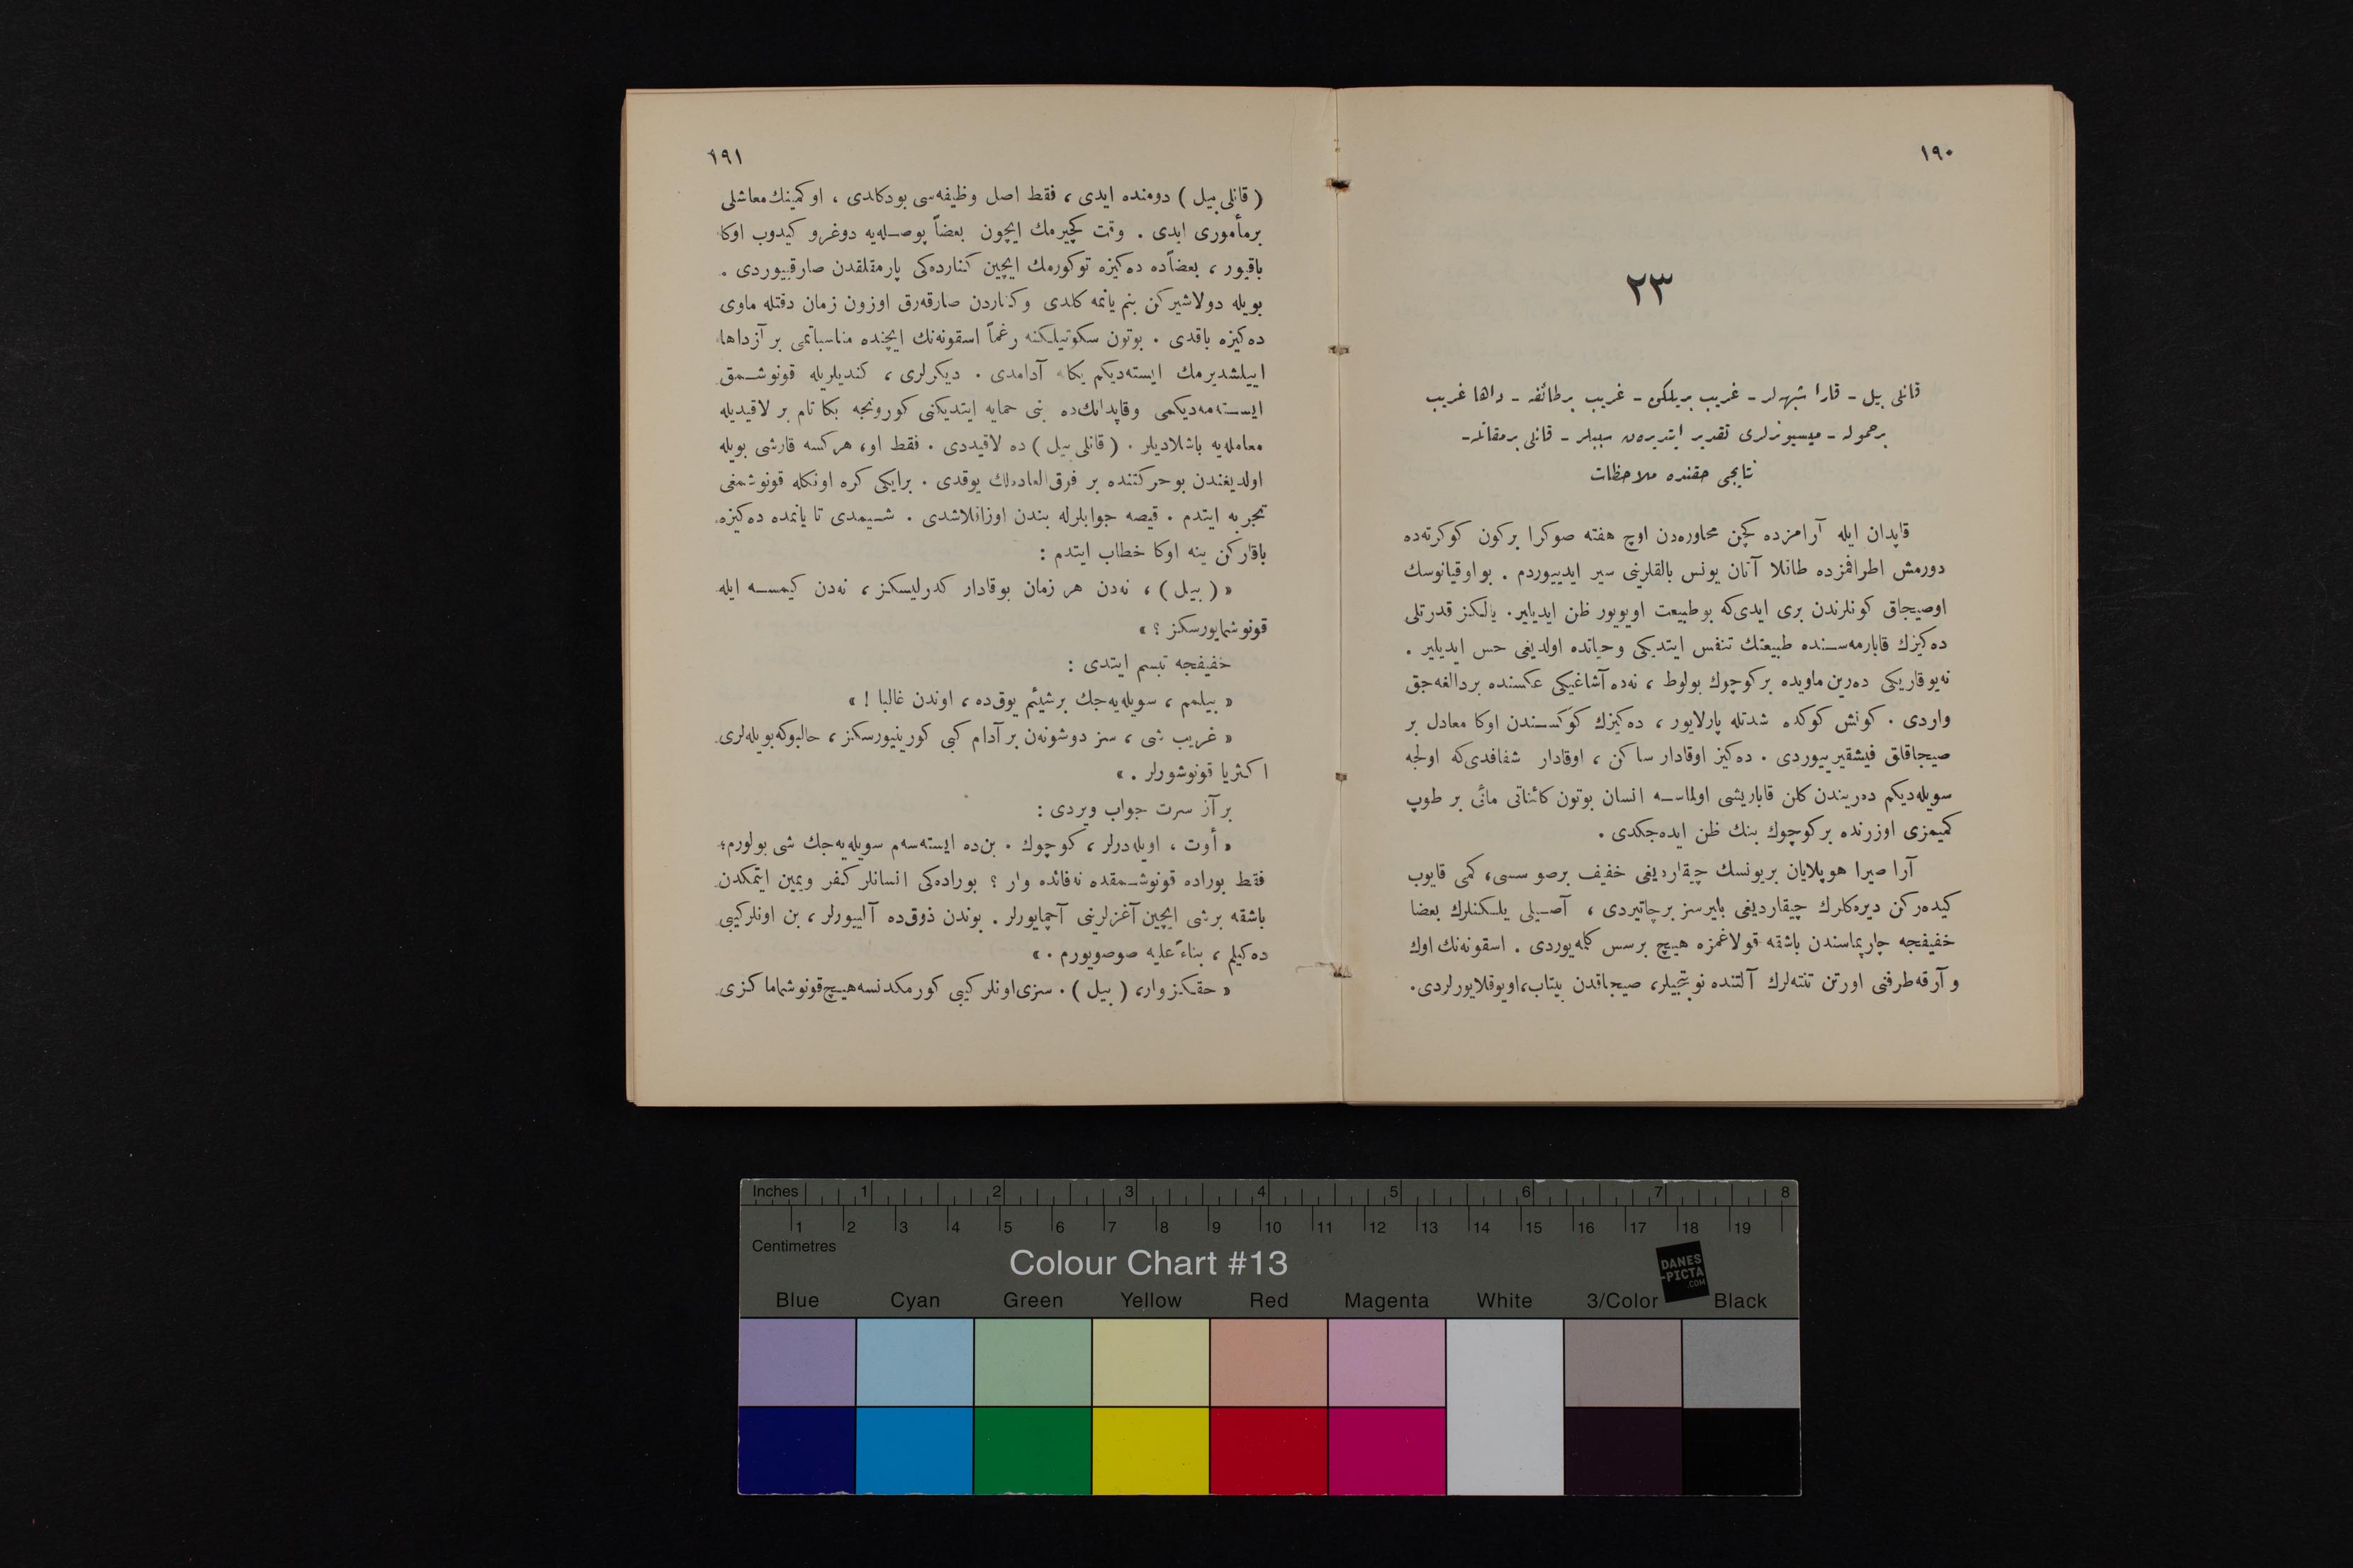 ١٩٠
٢٣
قانلی بیل ـ قارا شبهه‌لر ـ غریب بریلکن ـ غریب برطائفه ـ داها غریب
برحموله ـ میسیونرلری تقدیر ایتدیره‌ن سببلر ـ قانلی برمقاتله ـ
نتایجی حقنده ملاحظات
قاپدان ایله آرامزده کچن محاوره‌دن اوچ هفته صوکرا برکون کوکرته‌ده
دورمش اطرافمزده طاقلا آتان یونس بالقلرینی سیر ایدییوردم . بواوقیانوسك
اوصیجاق کونلرندن بری ایدی‌که بوطبیعت اویویور ظن ایدیلیر. یالکز قدرتلی
ده‌کیزك قابارمه‌سنده طبیعتك تنفس ایتدیکی وحیاتده اولدیغی حس ایدیلیر .
نه‌یوقاریکی ده‌رین ماویده برکوچوك بولوط ، نه‌ده آشاغیکی عکسنده بردالغه‌جق
واردی . کونش کوکده شدتله پارلایور ، ده‌کیزك کوکسندن اوکا معادل بر
صیجاقلق فیشقیرییوردی . ده‌کیز اوقادار ساکن ، اوقادار شفافدی‌که اولجه
سویله‌دیکم ده‌ریندن کلن قاباریشی اولماسه انسان بوتون کائناتی مائی بر طوپ
کمیمزی اوزرنده برکوچوك بنك ظن ایده‌جکدی .
آرا صیرا هوپلایان بریونسك چیقاردیغی خفیف برصو سسی، کمی قایوب
کیده‌رکن دیره‌کلرك چیقاردیغی بایرسز برچاتیردی ، آصیلی یلکنلرك بعضا
خفیفجه چارپماسندن باشقه قولاغمزه هیچ برسس کلمه‌یوردی . اسقونه‌نك اوك
و آرقه‌طرفنی اورتن تنته‌لرك آلتنده نوبتجیلر، صیجاقدن بیتاب،اویوقلایورلردی.
١٩١
( قانلی بیل ) دومنده ایدی ، فقط اصل وظیفه‌سی بودکلدی ، اوکمینك معاشلی
برمأموری ایدی . وقت کچیرمك ایچون بعضاً پوصله‌یه دوغرو کیدوب اوکا
باقیور ، بعضاًده ده‌کیزه توکورمك ایچین کنارده‌کی پارمقلقدن صارقییوردی .
بویله دولاشیرکن بنم یانمه کلدی وکناردن صارقه‌رق اوزون زمان دقتله ماوی
ده‌کیزه باقدی . بوتون سکوتیلکنه رغماً اسقونه‌نك ایچنده مناسباتمی بر آزداها
اییلشدیرمك ایسته‌دیکم یکانه آدامدی . دیکرلری ، کندیلریله قونوشمق
ایسته‌مه‌دیکمی وقاپدانك‌ده بنی حمایه ایتدیکنی کورونجه بکا تام بر لاقیدیله
معامله‌یه باشلادیلر . ( قانلی بیل ) ده لاقیددی . فقط او، هرکسه قارشی بویله
اولدیغندن بوحرکتنده بر فرق‌العاده‌لك یوقدی . برایکی کره اونکله قونوشمغی
تجربه ایتدم . قیصه جوابلرله بندن اوزاقلاشدی . شیمدی تا یانمده ده‌کیزه
باقارکن ینه اوکا خطاب ایتدم :
« ( بیل ) ، نه‌دن هر زمان بوقادار کدرلیسکز ، نه‌دن کیمسه ایله
قونوشمایورسکز ؟ »
خفیفجه تبسم ایتدی :
« بیلمم ، سویله‌یه‌جك برشیئم یوق‌ده ، اوندن غالبا ! »
« غریب شی ، سز دوشونه‌ن برآدام کبی کورینیورسکز ، حالبوکه‌بویله‌لری
اکثریا قونوشورلر . »
بر آز سرت جواب ویردی :
« أوت ، اویله‌درلر ، کوچوك . بن‌ده ایسته‌سه‌م سویله‌یه‌جك شی بولورم؛
فقط بوراده قونوشمقده نه‌فائده وار ؟ بوراده‌کی انسانلر کفر ویمین ایتمکدن
باشقه برشی ایچین آغزلرینی آچمایورلر . بوندن ذوق‌ده آلییورلر ، بن اونلرکیبی
ده‌کیلم ، بناءً علیه صوصویورم . »
« حقکز وار، ( بیل ) . سزی‌اونلر کیبی کورمکدنسه هیچ‌قونوشماماکزی